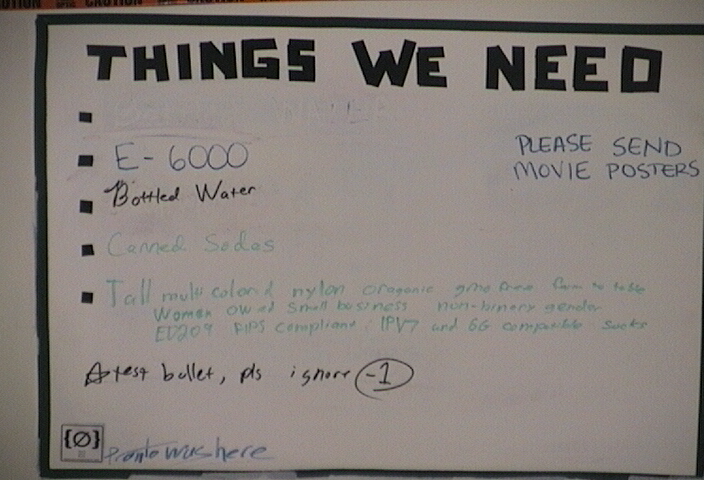 CAUTION CAUTION CAUTION
THINGS WE NEED
E-6000
PLEASE SEND
MOVIE POSTERS
Bottled Water
Canned Sodas
Tall multi colored nylon oraganic gmo free farm to table
Women owned small business non-binary gender
ED209 FIPS compliant IPV7 and 6G compatible socks
test bullet, pls ignore -1
{Ø}
Pronto was here